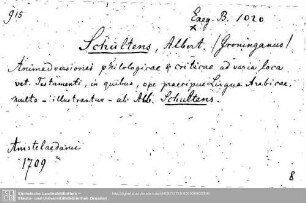 915
Exeg. B. 1020
Schultens, Albert. (Groninganus)
Animadversiones philologicae & criticae ad varia loca
vet. Testamenti, in quibus, ope praecipue Linguae Arabicae,
multa - illustrantur - ab Alb. Schultens.
Amstelaedami
1709
8
Sächsische Landesbibliothek -
Staats- und Universitätsbibliothek Dresden